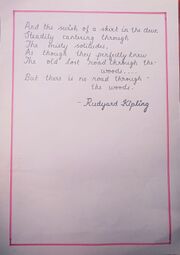 And the swish of a skirt in the dew.
Steadily cantering through
The misty solitudes,
As though they perfectly knew
The old lost road through the
woods....
But there is no road through
the woods.
- Rudyard Kipling